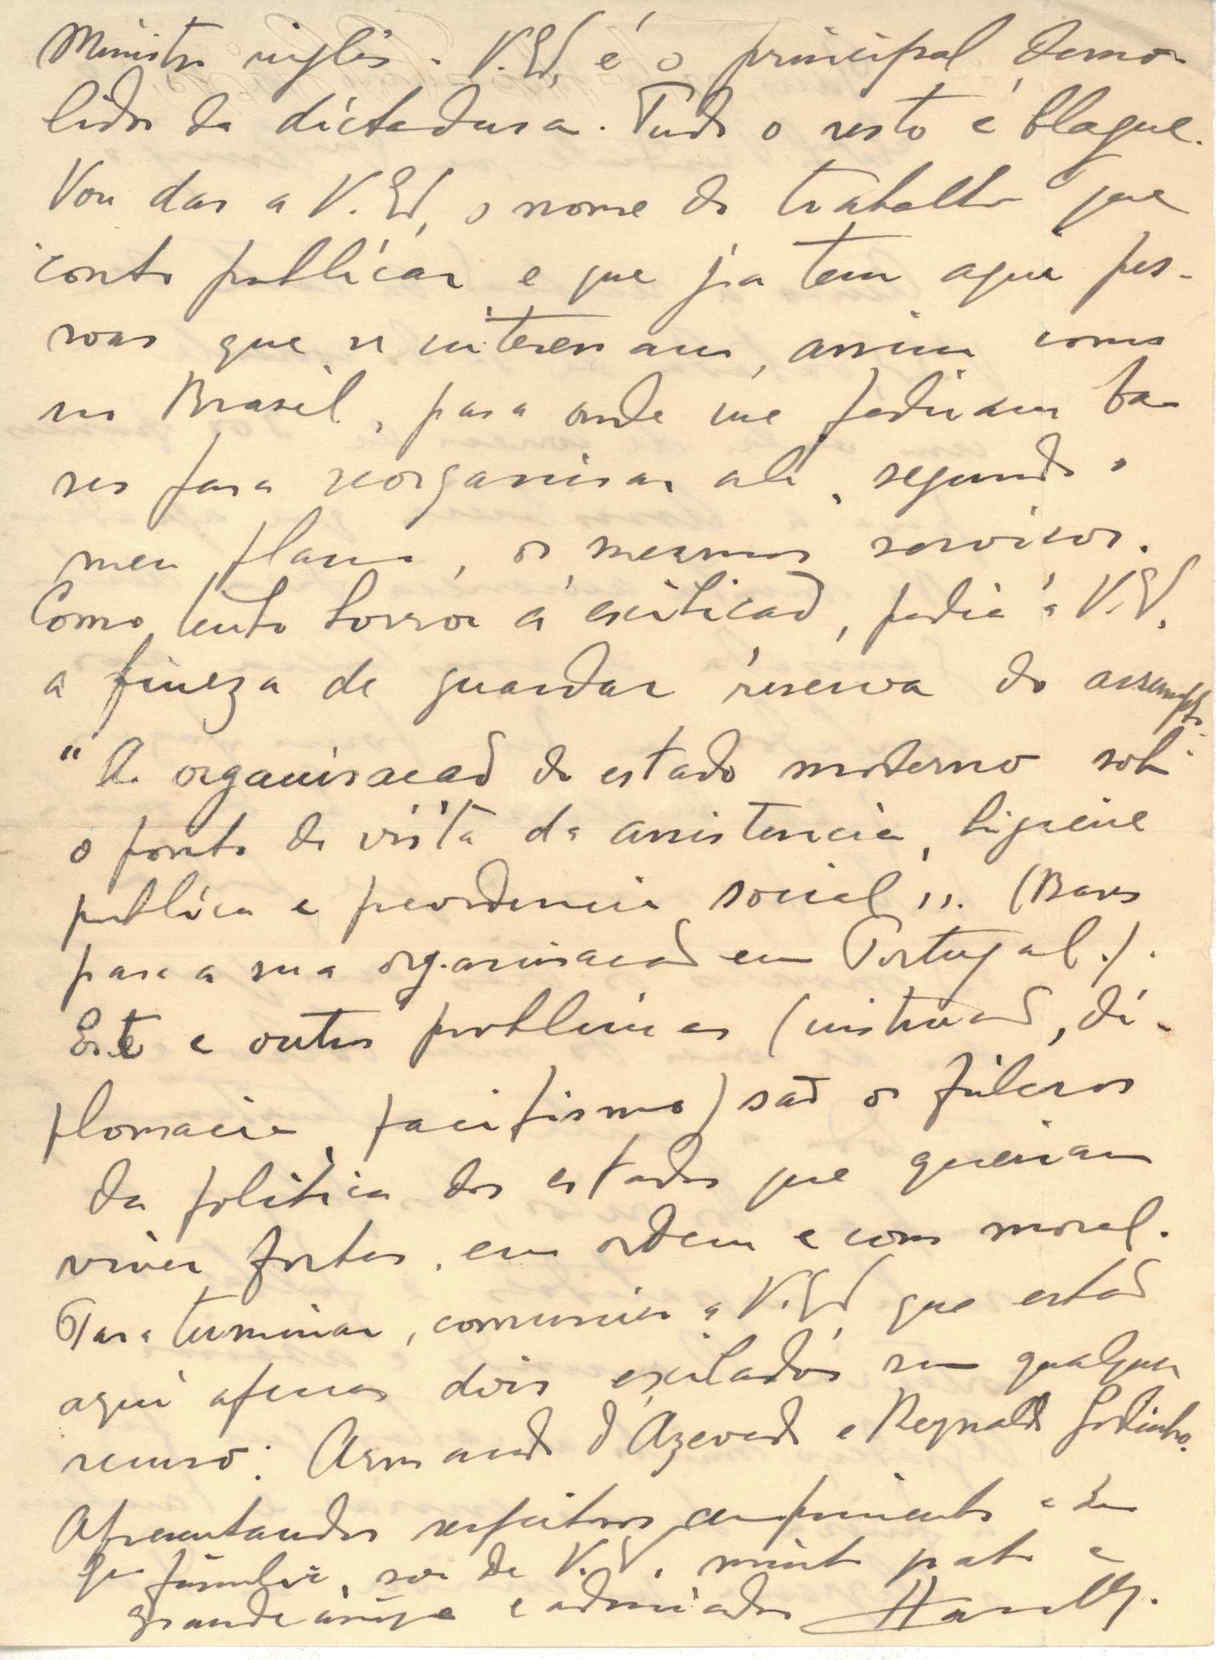 Ministro inglês. V. Ex.ª é o principal demo-
lidor da dictadura. Tudo o resto é blague.
Vou dar a V. Ex.ª, o nome do trabalho que
conto publicar e que já tem aqui pes-
soas que se interessam, assim como
no Brasil, para onde me pediram ba-
ses para reorganisar ali, segundo o
meu plano, os mesmos serviços.
Como tenho horror á exibicaõ, pedia a V. Ex.ª
a fineza de guardar reserva do assumpto.
"A organisacaõ do estado moderno sob
o ponto de vista da assistencia, higiene
publica e previdencia social". (Bases
para a sua organisacaõ em Portugal.).
Este e outros problemas (instrucaõ, di-
plomacia, pacifismo) saõ os fulcros
da politica dos estados que queiram
viver fortes, em ordem e com moral.
Para terminar, comunico a V. Ex.ª que estaõ
aqui apenas dois exilados sem qualquer
recurso: Armando d'Azevedo e Reynaldo Godinho.
Apresentando respeitosos cumprimentos a
familia, sou de V. Ex.ª, muito grato e
grande amigo e admirador